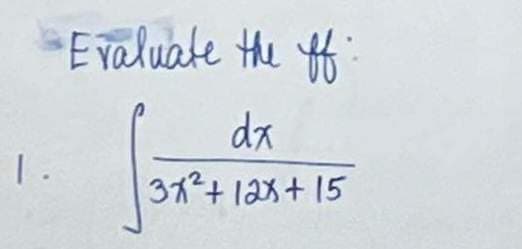 Evaluate the ff:
1. ∫ dx / 3x² + 12x + 15